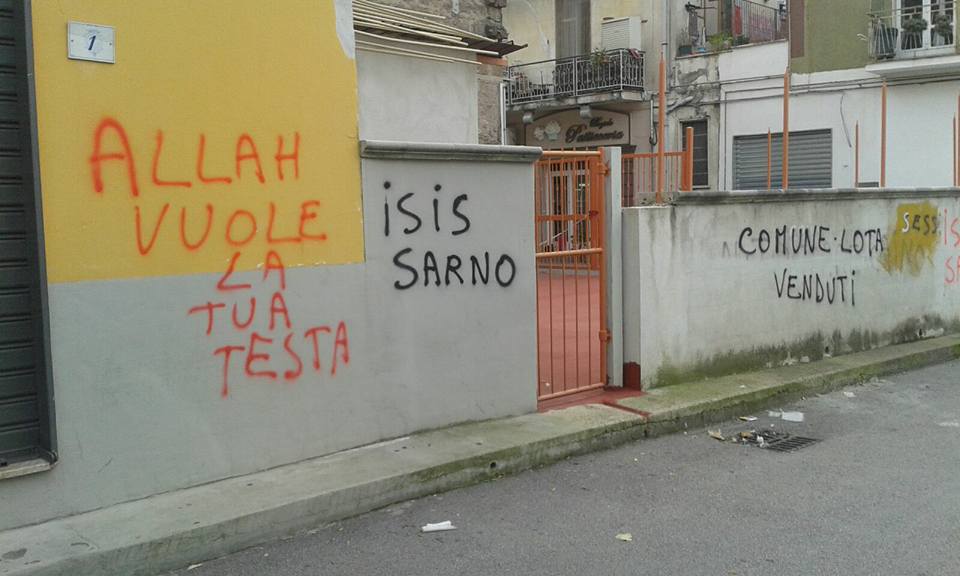 1
ALLAH
VUOLE
LA
TUA
TESTA
isis
SARNO
Pasticceria
COMUNE·LOTA
VENDUTi
SESS